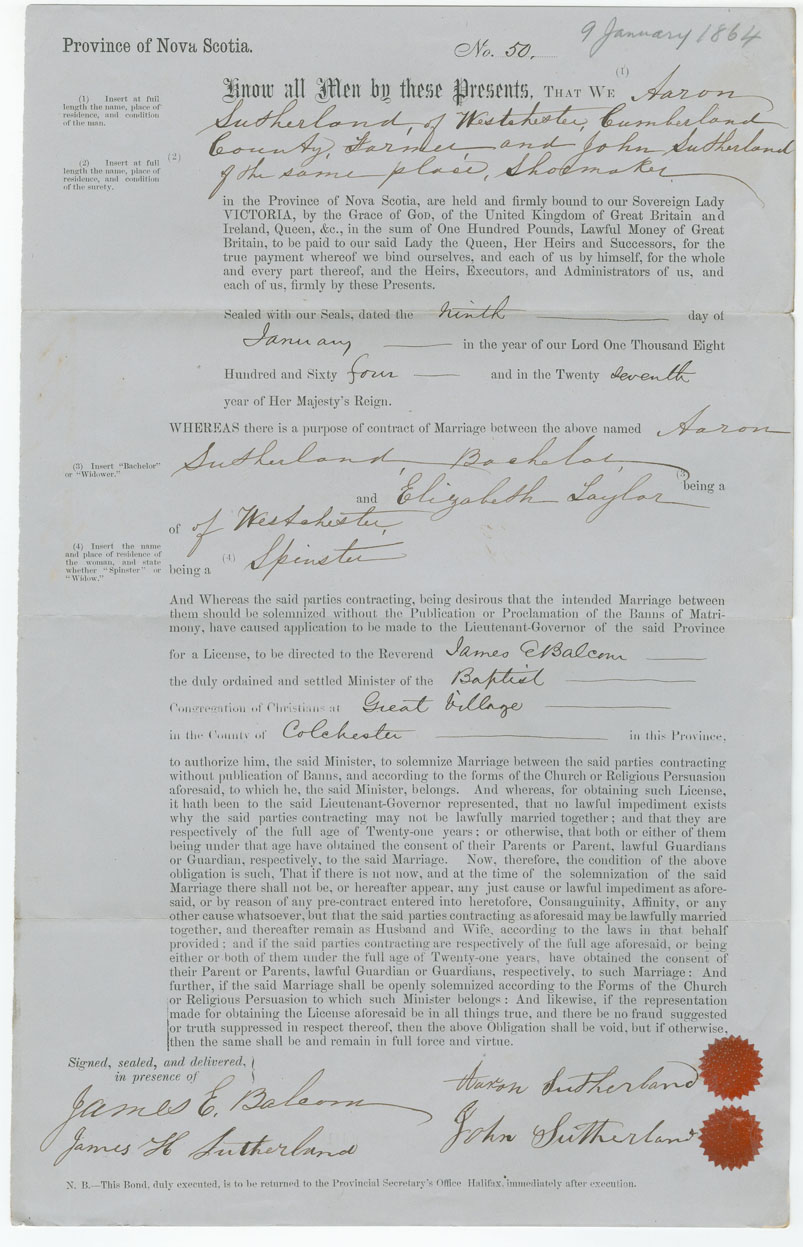 9 January 1864
Province of Nova Scotia.
No. 50.
(1)
Know all Men by these Presents, THAT WE Aaron
(1) Insert at full
length the name, place of
residence, and condition
of the man.
Sutherland, of Westchester, Cumberland
County, Farmer and John Sutherland
(2)
of the same place, Shoemaker
(2) Insert at full
length the name, place of
residence, and condition
of the surety.
in the Province of Nova Scotia, are held and firmly bound to our Sovereign Lady
VICTORIA, by the Grace of GOD, of the United Kingdom of Great Britain and
Ireland, Queen, &c., in the sum of One Hundred Pounds, Lawful Money of Great
Britain, to be paid to our said Lady the Queen, Her Heirs and Successors, for the
true payment whereof we bind ourselves, and each of us by himself, for the whole
and every part thereof, and the Heirs, Executors, and Administrators of us, and
each of us, firmly by these Presents.
Sealed with our Seals, dated the ninth day of
January in the year of our Lord One Thousand Eight
Hundred and Sixty four and in the Twenty seventh
year of Her Majesty's Reign.
WHEREAS there is a purpose of contract of Marriage between the above named Aaron
Sutherland, Bachelor,
(3) Insert "Bachelor"
or "Widower."
(3)
being a
and Elizabeth Taylor
of of Westchester,
(4) Insert the name
and place of residence of
the woman, and state
whether "Spinster" or
"Widow."
being a (4) Spinster
And Whereas the said parties contracting, being desirous that the intended Marriage between
them should be solemnized without the Publication or Proclamation of the Banns of Matri-
mony, have caused application to be made to the Lieutenant-Governor of the said Province
for a License, to be directed to the Reverend James E Balcom
the duly ordained and settled Minister of the Baptist
Congregation of Christians at Great Village
in the County of Colchester in this Province,
to authorize him, the said Minister, to solemnize Marriage between the said parties contracting
without publication of Banns, and according to the forms of the Church or Religious Persuasion
aforesaid, to which he, the said Minister, belongs. And whereas, for obtaining such License,
it hath been to the said Lieutenant-Governor represented, that no lawful impediment exists
why the said parties contracting may not be lawfully married together; and that they are
respectively of the full age of Twenty-one years; or otherwise, that both or either of them
being under that age have obtained the consent of their Parents or Parent, lawful Guardians
or Guardian, respectively, to the said Marriage. Now, therefore, the condition of the above
obligation is such, That if there is not now, and at the time of the solemnization of the said
Marriage there shall not be, or hereafter appear, any just cause or lawful impediment as afore-
said, or by reason of any pre-contract entered into heretofore, Consanguinity, Affinity, or any
other cause whatsoever, but that the said parties contracting as aforesaid may be lawfully married
together, and thereafter remain as Husband and Wife, according to the laws in that behalf
provided; and if the said parties contracting are respectively of the full age aforesaid, or being
either or both of them under the full age of Twenty-one years, have obtained the consent of
their Parent or Parents, lawful Guardian or Guardians, respectively, to such Marriage: And
further, if the said Marriage shall be openly solemnized according to the Forms of the Church
or Religious Persuasion to which such Minister belongs: And likewise, if the representation
made for obtaining the License aforesaid be in all things true, and there be no fraud suggested
or truth suppressed in respect thereof, then the above Obligation shall be void, but if otherwise,
then the same shall be and remain in full force and virtue.
Signed, sealed, and delivered,
in presence of
James E. Balcom
James H Sutherland
Aaron Sutherland
John Sutherland
N. B.—This Bond, duly executed, is to be returned to the Provincial Secretary's Office Halifax, immediately after execution.